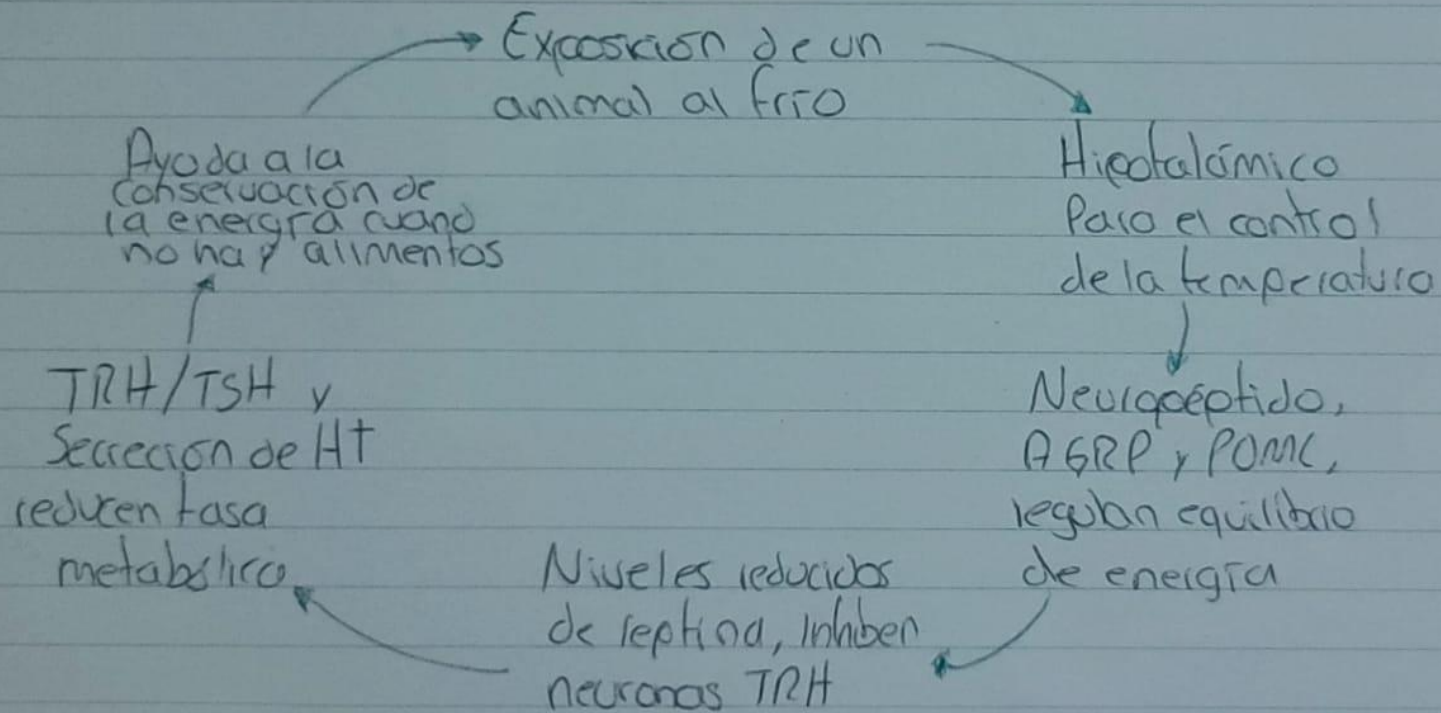 Exposición de un
animal al frío
Hipotalámico
Para el control
de la temperatura
Neuropéptido,
AGRP y POMC,
regulan equilibrio
de energía
Niveles reducidos
de leptina, inhiben
neuronas TRH
TRH/TSH y
Secreción de HT
reducen tasa
metabólica
Ayuda a la
conservación de
la energía cuando
no hay alimentos